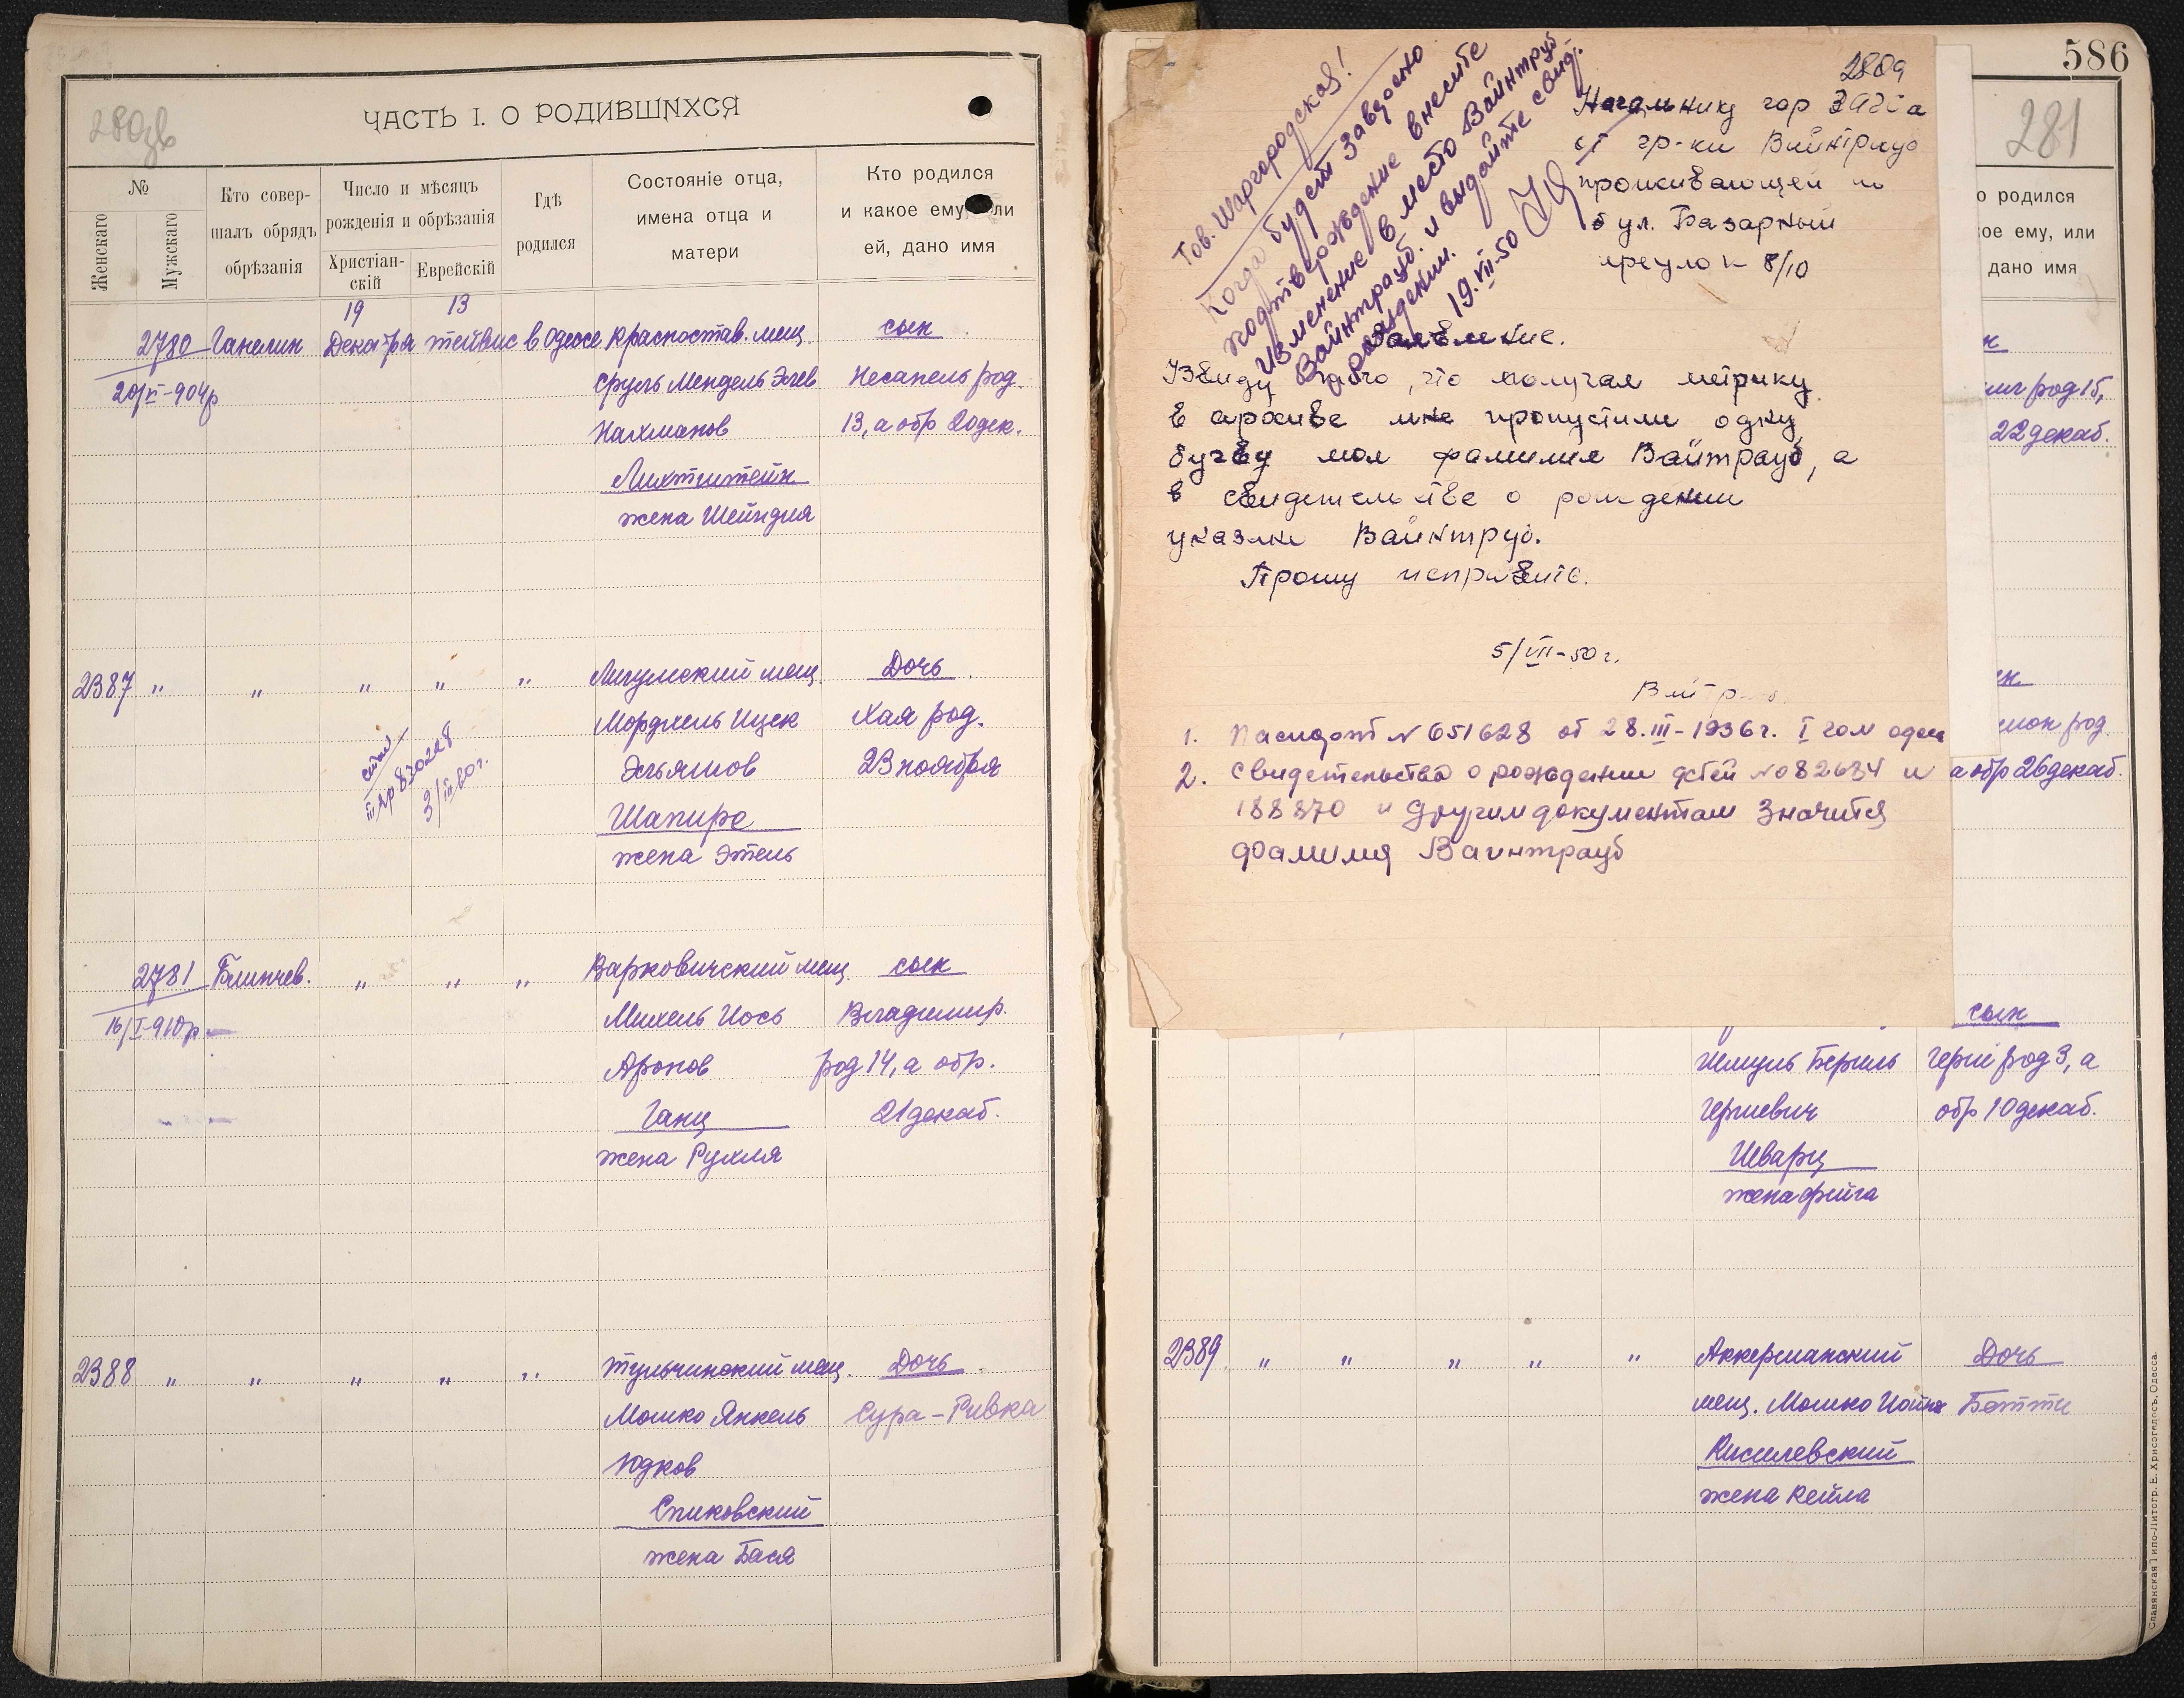 280 зв
ЧАСТЬ I. О РОДИВШИХСЯ
№
Женскаго
Мужскаго
Кто совер-
шалъ обрядъ
обрѣзанія
Число и мѣсяцъ
рожденія и обрѣзанія
Христіан-
скій
Еврейскій
Гдѣ
родился
Состояніе отца,
имена отца и
матери
Кто родился
и какое ему, или
ей, дано имя
19 13
2780 Ганелин Декабря тейвис в Одессе Красностав. мещ. сын
20/VI-904р Сруль Мендель Элев Несанель род.
Нахманов 13, а обр 20 дек.
Лихтштейн
жена Шейндля
2387 " " " " " Лигумский мещ. Дочь
Мордхель Ицек Хая род.
Эльяшов 23 ноября
III яр 870228
3/III 80г.
Шапиро
жена Этель
2781 Блинчев. " " " Варковичский мещ. сын
16/I-910р Михель Иось Владимир.
Аронов род 14, а обр.
Ганц 21 декаб.
жена Рухля
2388 " " " " " Тульчинский мещ. Дочь
Мошко Янкель Сура-Ривка
Юдков
Спиковский
жена Бася
586
281
о родился
ое ему, или
дано имя
род 15,
22 декаб.
род
а обр 26 декаб.
280а
Начальнику гор ЗАГСа
от гр-ки Вайнтрауб
проживающей по
ул. Базарный
переулок 8/10
Тов. Шаргородская!
Когда будет заведено
подтверждение внесите
изменение в место Вайнтруб
Вайнтрауб. и выдайте свид.
о рождении.
19.VII-50
Заявление.
Ввиду того, что получая метрику
в архиве мне пропустили одну
букву моя фамилия Вайтрауб, а
в свидетельстве о рождении
указали Вайнтруб.
Прошу исправить.
5/VII-50г.
1. Паспорт N 651628 от 28.III-1936г. I гом одесс
2. Свидетельства о рождении детей N 082634 и
188870 и другим документам значится
фамилия Ваинтрауб
сын
Шмуль Берль Герш род 3, а
Гершевич обр 10 декаб.
Шварц
жена Фейга
2389 " " " " " Аккерманский Дочь
мещ. Мошко Иойна Бетти
Киселевский
жена Кейла
Славянская Типо-Литогр. Е. Хрисогелосъ, Одесса.